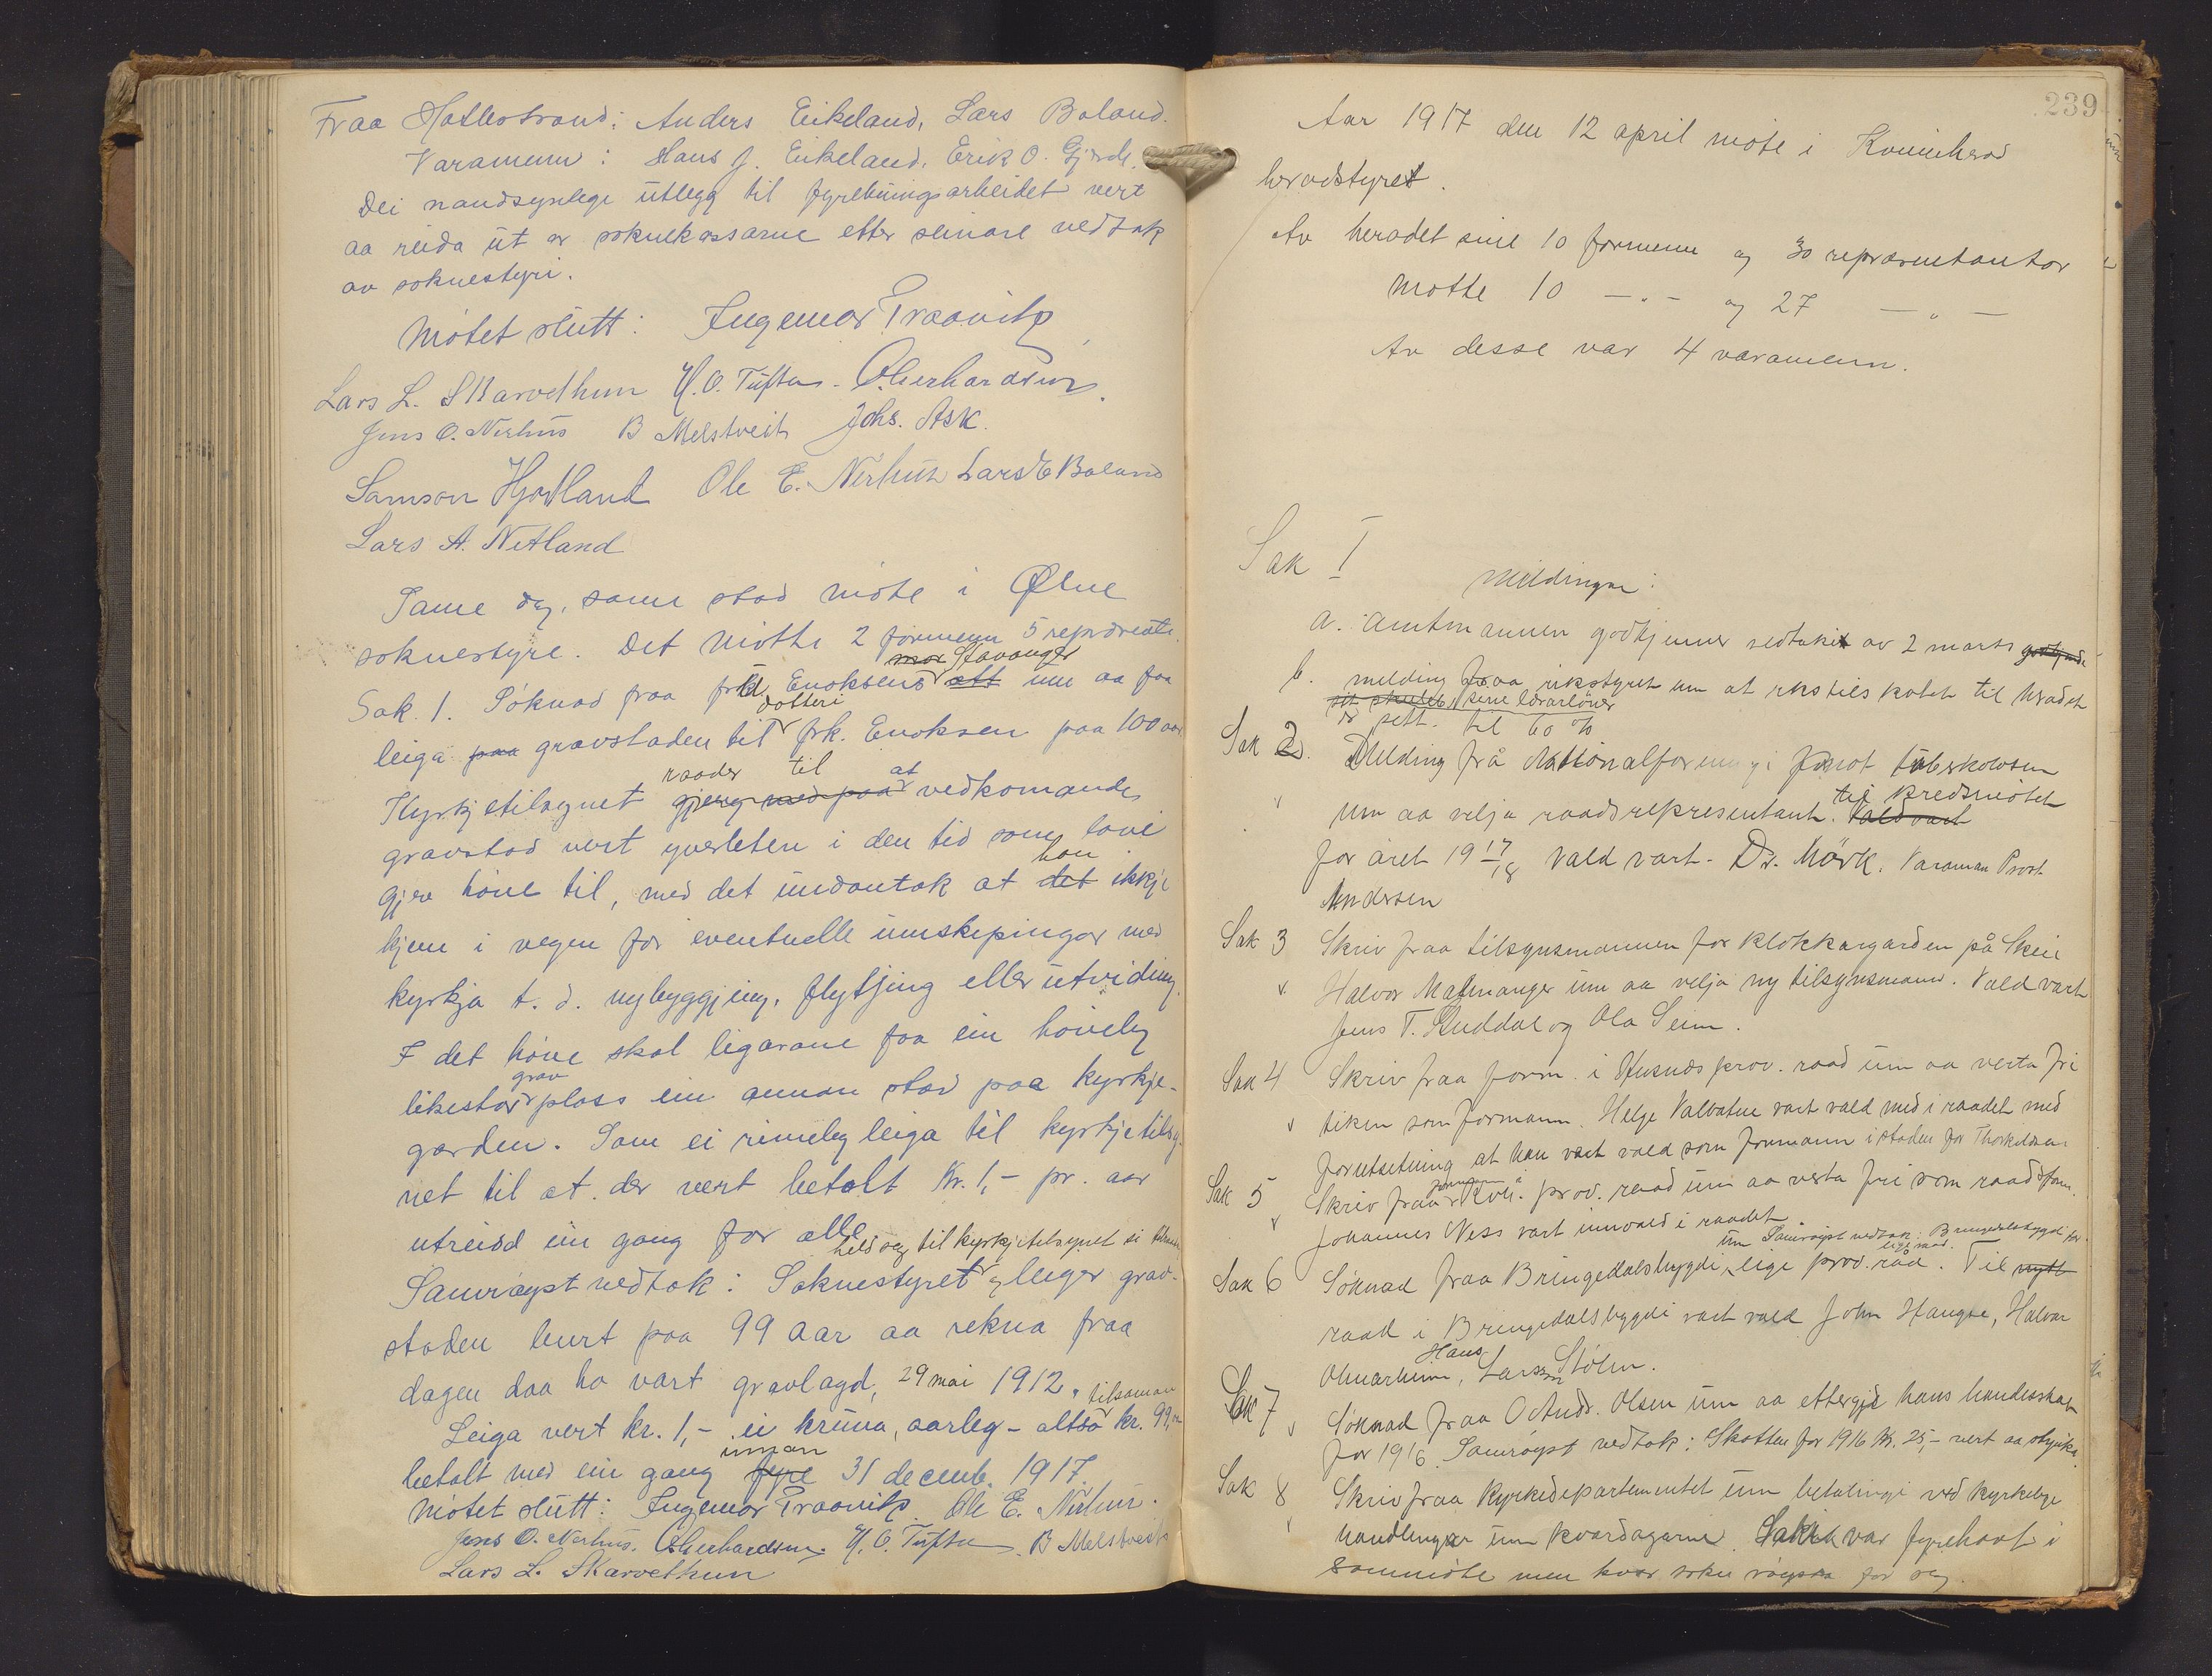 Fraa Hatlestrand: Anders Eikeland, Lars Boland.
Varamenn: Hans J. Eikeland, Erik O. Gjerde.
Dei naudsynlege utlegg til fyrebuingsarbeidet vert
aa reida ut av soknekassarne etter seinare vedtak
av soknestyri.
Møtet slutt: Ingemor Traavik
Lars L. Skarvethun H.O. Tufta. O. Gerhardsen.
Jens O. Nerhus B Melstveit Johs. Ask.
Samson Hjortland Ole E. Nerhus Lars E Boland
Lars A. Netland
Same dag, same stad møte i Ølve
soknestyre. Det møtte 2 formenn 5 repræsentt.
mor Stavanger
Sak 1. Søknad fraa frk Enoksens ætt um aa faa
dotteri
leiga paa gravstaden til frk. Enoksen paa 100 aar
raader til at
Kyrkjetilsynet gjeng med paa vedkomande
gravstad vert yverleten i den tid som lovi
han
gjev høve til, med det undantak at det ikkje
kjem i vegen for eventuelle umskipingar med
kyrkja t. d. nybyggjing, flytjing eller utviding.
I det høve skal ligarane faa ein høveleg
grav
likestor plass ein annan stad paa kyrkje-
garden. Som ei rimeleg leiga til kyrkjetilsy-
net til at der vert betalt Kr. 1,- pr. aar
utreidd ein gong for alle
held seg til kyrkjetilsynet si
Samrøyst vedtak: Soknestyret og leiger grav-
staden burt paa 99 aar aa rekna fraa
dagen daa ho vart gravlagd, 29 mai 1912.
tilsaman
Leiga vert kr. 1,- ei kruna, aarleg - altso kr. 99,00
innan
betalt med ein gong fyre 31 decemb. 1917.
Møtet slutt: Ingemor Traavik Ole E. Nerhus.
Jens O. Nerhus. O Gerhardsen. H. O. Tufta B Melstveit
Lars L. Skarvethun
239
Aar 1917 den 12 april møte i Kvinnherad
heradstyret.
Av heradet sine 10 formenn og 30 repræsentantar
møtte 10 — " — og 27 — " —
Av desse var 4 varamenn.
Sak I
Meldingar:
a. Amtmannen godkjenner vedtaket av 2 marts godkjende
b. melding fraa rikstyret um at rikstilskotet til heradet
sine lærarløner
er sett til 60 %
Sak 2. Melding frå Nationalforeningi imot tuberkolosen
til kredsmøtet
um aa velja raadsrepresentant. Vald vart
for året 1917/18 Vald vart. Dr. Mörk. Varaman Prost
Andersen
Sak 3 Skriv fraa tilsynsmannen for klokkargarden på Skeie
Halvor Malmanger um aa velja ny tilsynsmann. Vald vart
Jens T. Guddal og Ola Seim.
Sak 4 Skriv fraa form. i Husnes prov. raad um aa verta fri
tiken som formann. Helge Valvatne vart vald med i raadet med
forutsetning at han vart vald som formann i staden for Thorkildsen
formann
Sak 5 Skriv fraa Kvh. prov. raad um aa verta fri som raadsform.
Johannes Ness vart innvald i raadet
um Samrøyst vedtak: Bringedalsbygdi fær
eige raad.
Sak 6 Søknad fraa Bringedalsbygdi eige prov. råd. Til nytt
raad i Bringedalsbygdi vart vald John Haugse, Halvor
Hans
Omarheim, Larssen Stølen.
Sak 7 Søknad fraa O Andr. Olsen um aa ettergje hans hundeskatt
for 1916. Samrøyst vedtak: Skatten for 1916 Kr. 25,- vert aa stryka.
Sak 8 Skriv fraa Kyrkjedepartementet um betalingi ved kyrkelege
handlingar um kvardagarne. Saki var fyrehavt i
sammøte men kvar sokn røysta for seg.